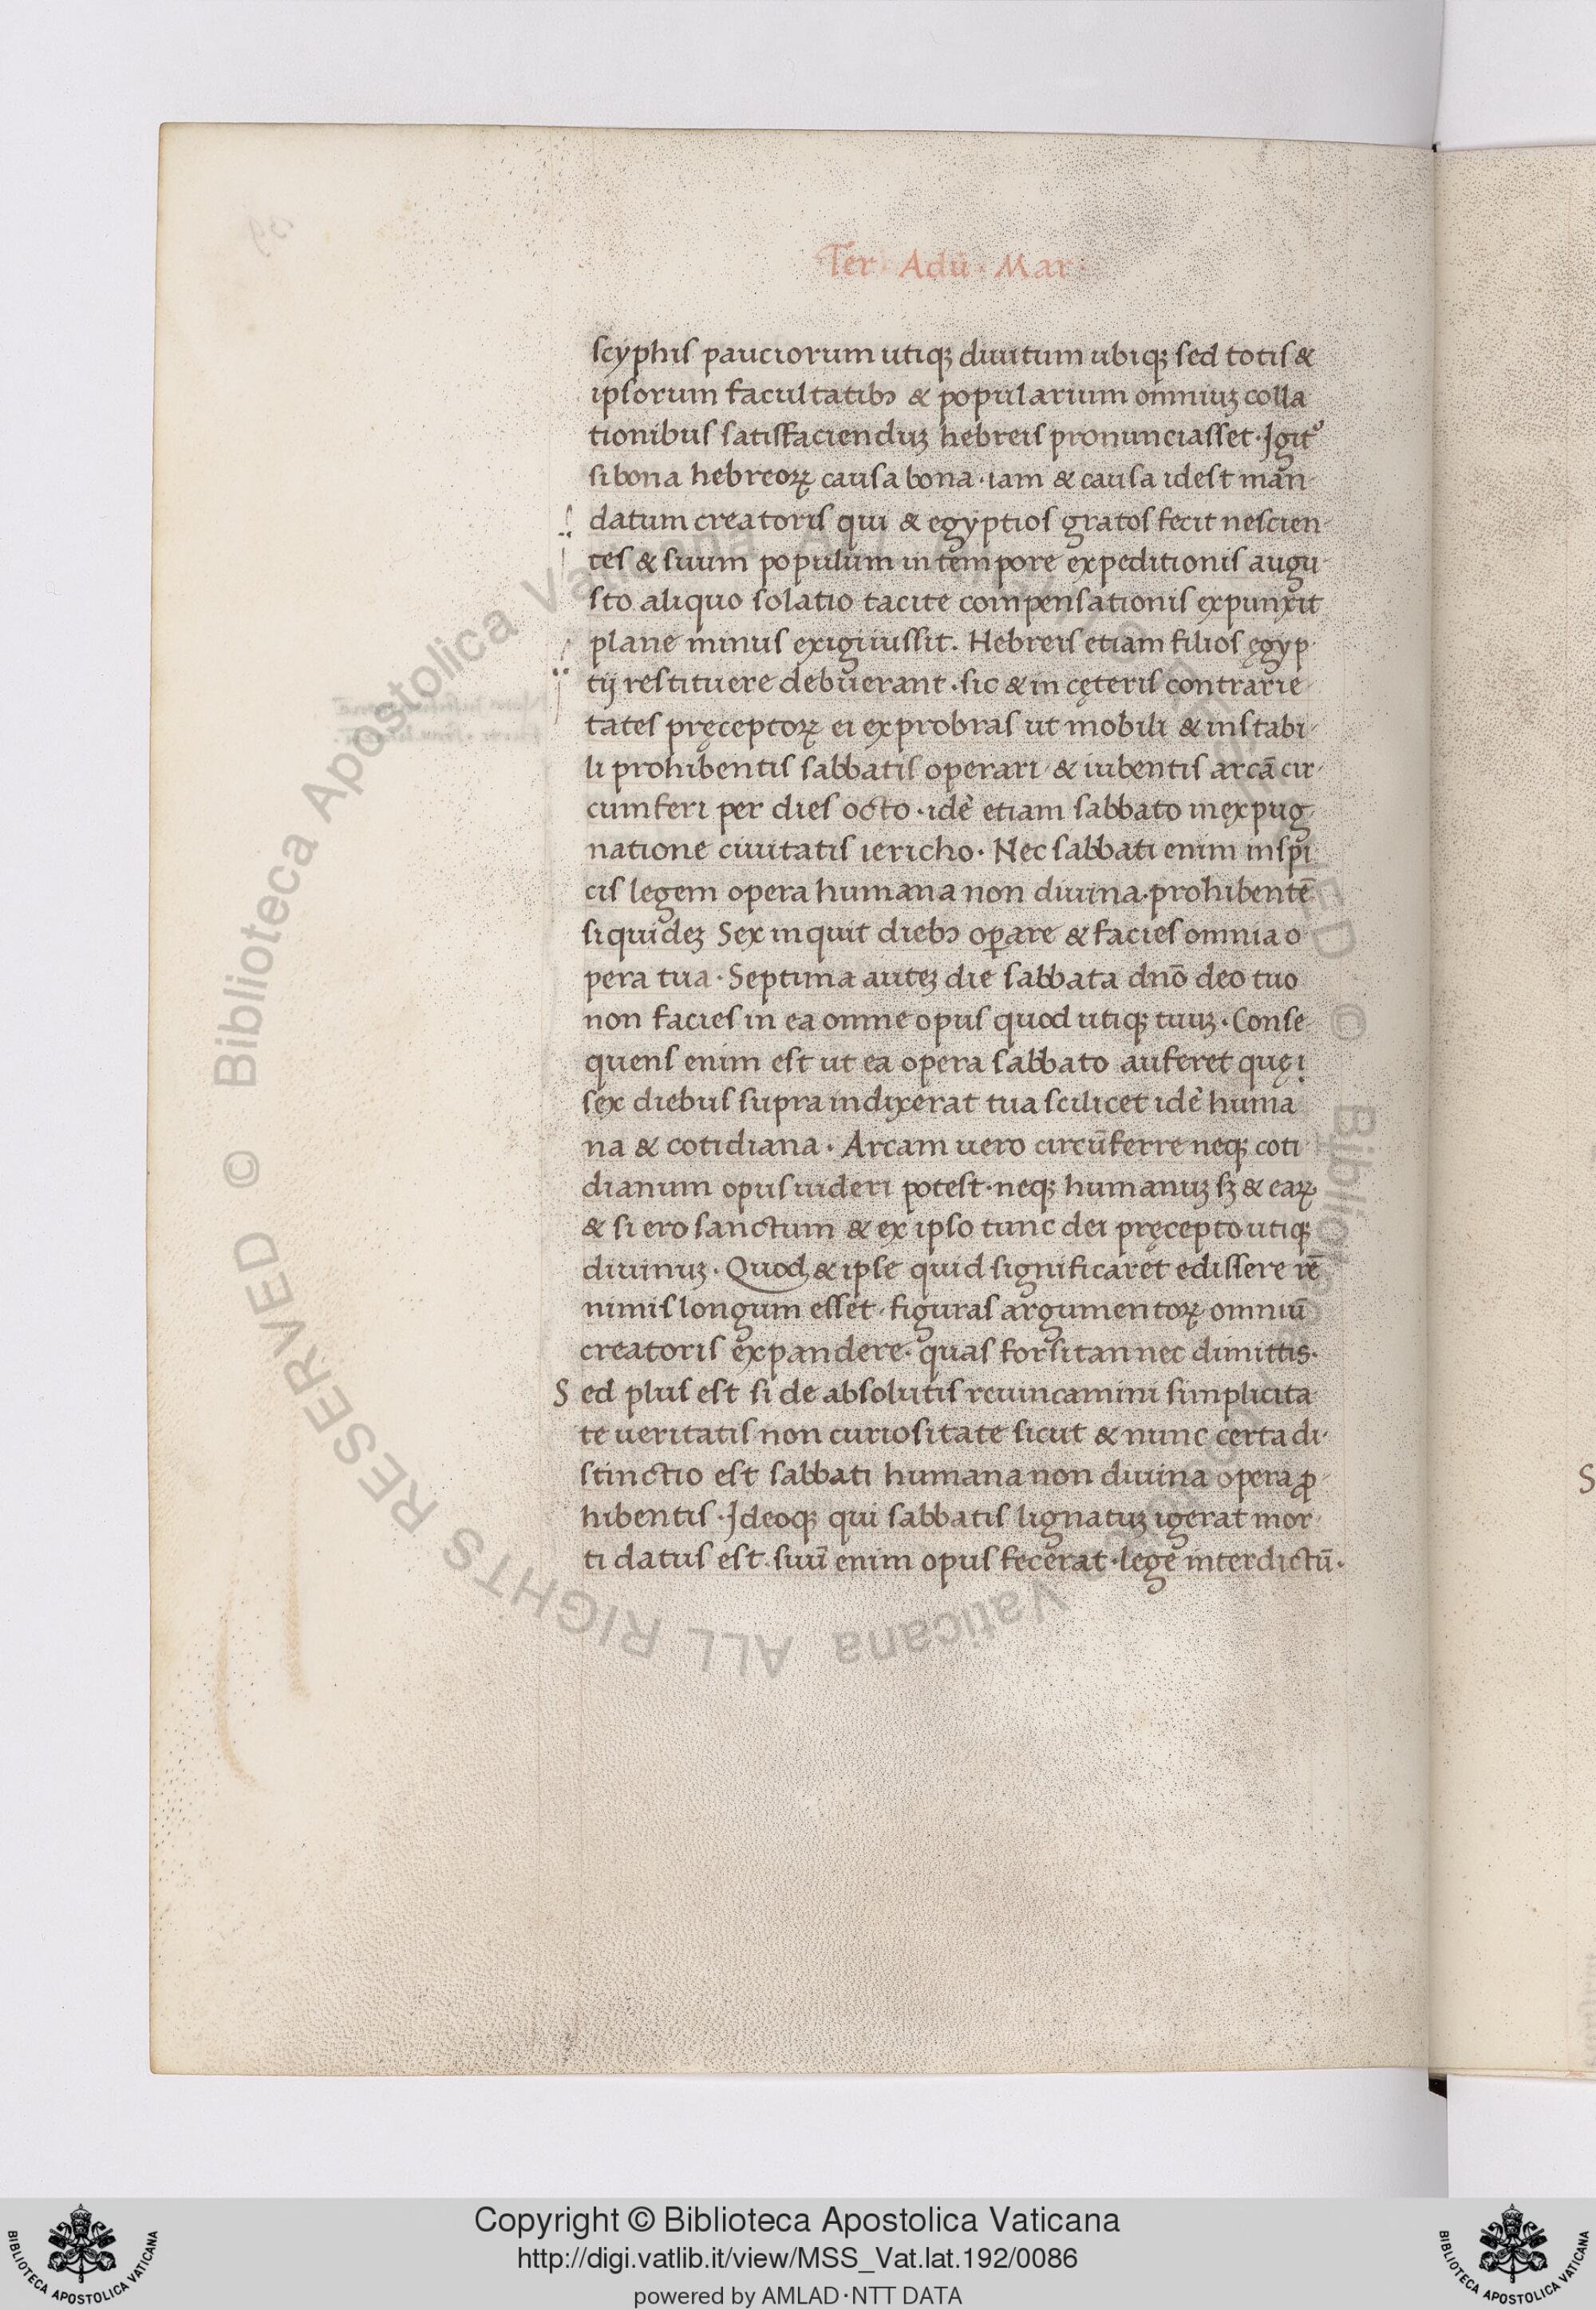 Ter · Adū · Mar ·
scyphis pauciorum utiqꝫ diuitum ubiqꝫ sed totis &
ipsorum facultatibꝰ & popularium omniuꝫ colla
tionibus satisfacienduꝫ hebreis pronunciasset · Jgitᷣ
si bona hebreoꝝ causa bona · iam & causa idest man-
datum creatoris qui & egyptios gratos fecit nescien-
tes & suum populum in tempore expeditionis augu-
sto aliquo solatio tacite compensationis expunxit
plane minus exigi iussit . Hebreis etiam filios ęgyp-
tij restituere debuerant · sic & in cęteris contrarie-
tates pręceptoꝝ ei exprobras ut mobili & instabi-
li prohibentis sabbatis operari · & iubentis arcā cir-
cumferi per dies octo · idē etiam sabbato in expug-
natione ciuitatis iericho · Nec sabbati enim inspi
cis legem opera humana non diuina · prohibentē
siquideꝫ Sex inquit diebꝰ oꝑare & facies omnia o
pera tua · Septima auteꝫ die sabbata dnō deo tuo
non facies in ea omne opus quod utiqꝫ tuuꝫ · Conse-
quens enim est ut ea opera sabbato auferet quę ī
sex diebus supra indixerat tua scilicet idē huma
na & cotidiana · Arcam uero circūferre neqꝫ coti
dianum opus uideri potest · neqꝫ humanuꝫ sꝫ & eaꝝ
& si ero sanctum & ex ipso tunc dei pręcepto utiqꝫ
diuinuꝫ · Quod & ipse quid significaret edissere rē
nimis longum esset · figuras argumentoꝝ omniū
creatoris expandere · quas forsitan nec dimittis ·
S ed plus est si de absolutis reuincamini simplicita
te ueritatis non curiositate sicut & nunc certa di-
stinctio est sabbati humana non diuina opera ꝓ
hibentis · Jdeoqꝫ qui sabbatis lignatuꝫ igerat mor-
ti datus est . suū enim opus fecerat · lege interdictū ·
S
© Biblioteca Apostolica Vaticana ALL RIGHTS RESERVED © Biblioteca Apostolica Vaticana ALL RIGHTS RESERVED
Copyright © Biblioteca Apostolica Vaticana
http://digi.vatlib.it/view/MSS_Vat.lat.192/0086
powered by AMLAD·NTT DATA
BIBLIOTECA APOSTOLICA VATICANA
BIBLIOTECA APOSTOLICA VATICANA